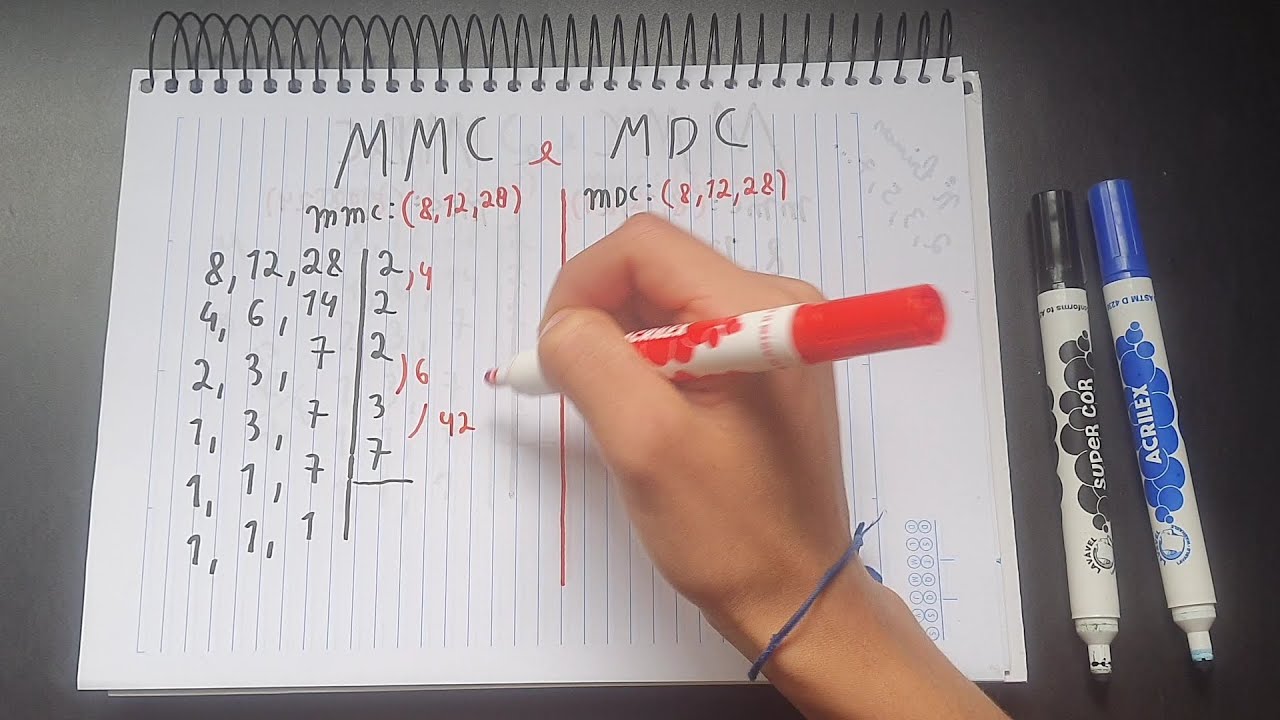 MMC e MDC
mmc: (8, 12, 28)
8, 12, 28 | 2 , 4
4, 6, 14 | 2
2, 3, 7 | 2 ) 6
1, 3, 7 | 3 ) 42
1, 1, 7 | 7
1, 1, 1
MDC: (8, 12, 28)
SUPER COR
JAVAVEL
ACRILEX
ASTM D